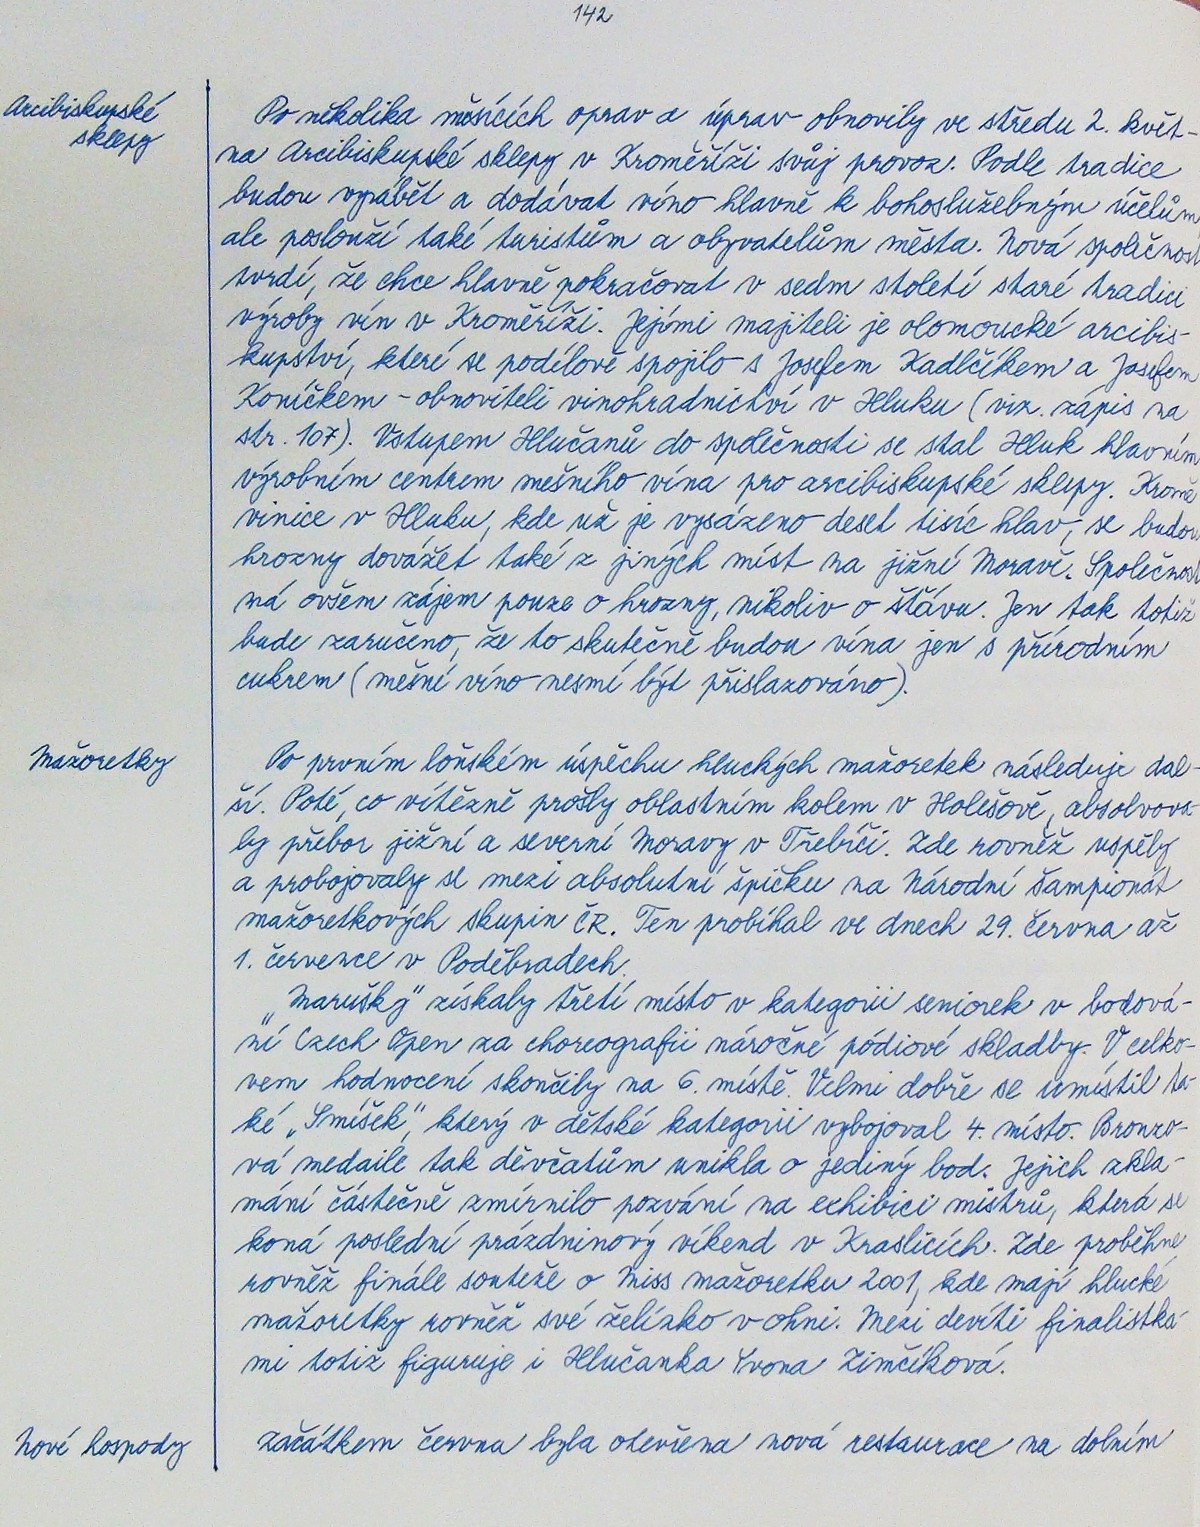 142
Arcibiskupské
sklepy
Po několika měsících oprav a úprav obnovily ve středu 2. květ-
na Arcibiskupské sklepy v Kroměříži svůj provoz. Podle tradice
budou vyrábět a dodávat víno hlavně k bohoslužebným účelům,
ale poslouží také turistům a obyvatelům města. Nová společnost
tvrdí, že chce hlavně pokračovat v sedm století staré tradici
výroby vín v Kroměříži. Jejími majiteli je olomoucké arcibis-
kupství, které se podílově spojilo s Josefem Kadlčíkem a Josefem
Koníčkem - obnoviteli vinohradnictví v Hluku (viz. zápis na
str. 107). Vstupem Hlučanů do společnosti se stal Hluk hlavním
výrobním centrem mešního vína pro arcibiskupské sklepy. Kromě
vinice v Hluku, kde už je vysázeno deset tisíc hlav, se budou
hrozny dovážet také z jiných míst na jižní Moravě. Společnost
má ovšem zájem pouze o hrozny, nikoliv o šťávu. Jen tak totiž
bude zaručeno, že to skutečně budou vína jen s přírodním
cukrem (mešní víno nesmí být přislazováno).
Mažoretky
Po prvním loňském úspěchu hluckých mažoretek následuje dal-
ší. Poté, co vítězně prošly oblastním kolem v Holešově, absolvova-
ly přebor jižní a severní Moravy v Třebíči. Zde rovněž uspěly
a probojovaly se mezi absolutní špičku na Národní šampionát
mažoretkových skupin ČR. Ten probíhal ve dnech 29. června až
1. července v Poděbradech.
„Marušky" získaly třetí místo v kategorii seniorek v bodová-
ní Czech Open za choreografii náročné pódiové skladby. V celko-
vem hodnocení skončily na 6. místě. Velmi dobře se umístil ta-
ké „Smíšek", který v dětské kategorii vybojoval 4. místo. Bronzo-
vá medaile tak děvčatům unikla o jediný bod. Jejich zkla-
mání částečně zmírnilo pozvání na exhibici mistrů, která se
koná poslední prázdninový víkend v Kraslicích. Zde proběhne
rovněž finále soutěže o Miss mažoretku 2001, kde mají hlucké
mažoretky rovněž své želízko v ohni. Mezi devíti finalistka-
mi totiž figuruje i Hlučanka Yvona Zimčíková.
Nové hospody
Začátkem června byla otevřena nová restaurace na dolním